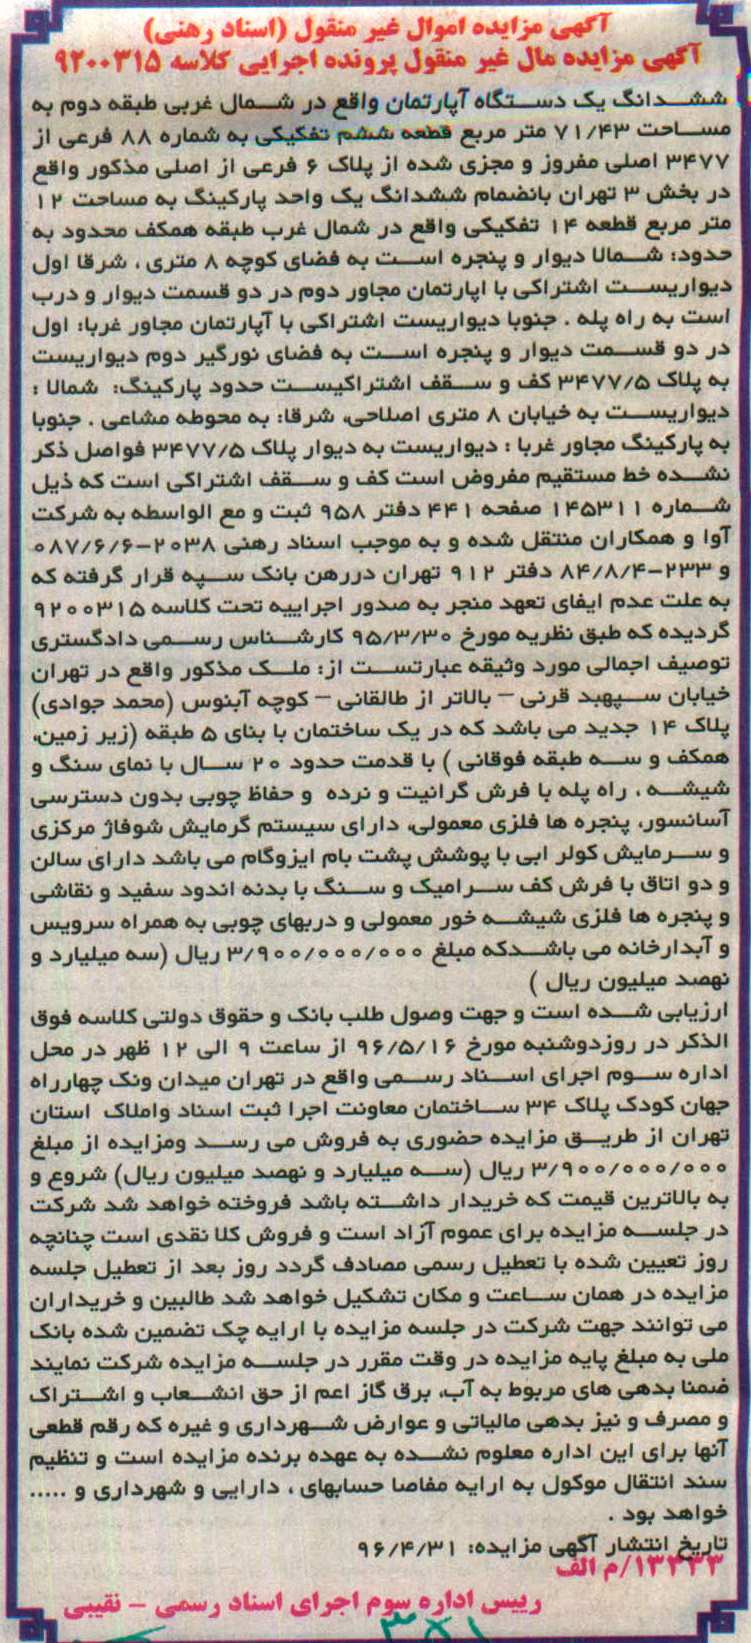 آگهی مزایده اموال غیر منقول (اسناد رهنی)
آگهی مزایده مال غیر منقول پرونده اجرایی کلاسه ۹۲۰۰۳۱۵
ششدانگ یک دستگاه آپارتمان واقع در شمال غربی طبقه دوم به
مساحت ۷۱/۴۳ متر مربع قطعه ششم تفکیکی به شماره ۸۸ فرعی از
۳۴۷۷ اصلی مفروز و مجزی شده از پلاک ۶ فرعی از اصلی مذکور واقع
در بخش ۳ تهران بانضمام ششدانگ یک واحد پارکینگ به مساحت ۱۲
متر مربع قطعه ۱۴ تفکیکی واقع در شمال غرب طبقه همکف محدود به
حدود: شمالا دیوار و پنجره است به فضای کوچه ۸ متری ، شرقا اول
دیواریست اشتراکی با اپارتمان مجاور دوم در دو قسمت دیوار و درب
است به راه پله . جنوبا دیواریست اشتراکی با آپارتمان مجاور غربا: اول
در دو قسمت دیوار و پنجره است به فضای نورگیر دوم دیواریست
به پلاک ۳۴۷۷/۵ کف و سقف اشتراکیست حدود پارکینگ: شمالا :
دیواریست به خیابان ۸ متری اصلاحی، شرقا: به محوطه مشاعی . جنوبا
به پارکینگ مجاور غربا : دیواریست به دیوار پلاک ۳۴۷۷/۵ فواصل ذکر
نشده خط مستقیم مفروض است کف و سقف اشتراکی است که ذیل
شماره ۱۴۵۳۱۱ صفحه ۴۴۱ دفتر ۹۵۸ ثبت و مع الواسطه به شرکت
آوا و همکاران منتقل شده و به موجب اسناد رهنی ۲۰۳۸-۰۸۷/۶/۶
و ۲۳۳-۸۴/۸/۴ دفتر ۹۱۲ تهران دررهن بانک سپه قرار گرفته که
به علت عدم ایفای تعهد منجر به صدور اجراییه تحت کلاسه ۹۲۰۰۳۱۵
گردیده که طبق نظریه مورخ ۹۵/۳/۳۰ کارشناس رسمی دادگستری
توصیف اجمالی مورد وثیقه عبارتست از: ملک مذکور واقع در تهران
خیابان سپهبد قرنی – بالاتر از طالقانی – کوچه آبنوس (محمد جوادی)
پلاک ۱۴ جدید می باشد که در یک ساختمان با بنای ۵ طبقه (زیر زمین،
همکف و سه طبقه فوقانی ) با قدمت حدود ۲۰ سال با نمای سنگ و
شیشه ، راه پله با فرش گرانیت و نرده و حفاظ چوبی بدون دسترسی
آسانسور، پنجره ها فلزی معمولی، دارای سیستم گرمایش شوفاژ مرکزی
و سرمایش کولر ابی با پوشش پشت بام ایزوگام می باشد دارای سالن
و دو اتاق با فرش کف سرامیک و سنگ با بدنه اندود سفید و نقاشی
و پنجره ها فلزی شیشه خور معمولی و دربهای چوبی به همراه سرویس
و آبدارخانه می باشدکه مبلغ ۳/۹۰۰/۰۰۰/۰۰۰ ریال (سه میلیارد و
نهصد میلیون ریال )
ارزیابی شده است و جهت وصول طلب بانک و حقوق دولتی کلاسه فوق
الذکر در روزدوشنبه مورخ ۹۶/۵/۱۶ از ساعت ۹ الی ۱۲ ظهر در محل
اداره سوم اجرای اسناد رسمی واقع در تهران میدان ونک چهارراه
جهان کودک پلاک ۳۴ ساختمان معاونت اجرا ثبت اسناد واملاک استان
تهران از طریق مزایده حضوری به فروش می رسد ومزایده از مبلغ
۳/۹۰۰/۰۰۰/۰۰۰ ریال (سه میلیارد و نهصد میلیون ریال) شروع و
به بالاترین قیمت که خریدار داشته باشد فروخته خواهد شد شرکت
در جلسه مزایده برای عموم آزاد است و فروش کلا نقدی است چنانچه
روز تعیین شده با تعطیل رسمی مصادف گردد روز بعد از تعطیل جلسه
مزایده در همان ساعت و مکان تشکیل خواهد شد طالبین و خریداران
می توانند جهت شرکت در جلسه مزایده با ارایه چک تضمین شده بانک
ملی به مبلغ پایه مزایده در وقت مقرر در جلسه مزایده شرکت نمایند
ضمنا بدهی های مربوط به آب، برق گاز اعم از حق انشعاب و اشتراک
و مصرف و نیز بدهی مالیاتی و عوارض شهرداری و غیره که رقم قطعی
آنها برای این اداره معلوم نشده به عهده برنده مزایده است و تنظیم
سند انتقال موکول به ارایه مفاصا حسابهای ، دارایی و شهرداری و .....
خواهد بود .
تاریخ انتشار آگهی مزایده: ۹۶/۴/۳۱
۱۳۴۳۳/م الف
رییس اداره سوم اجرای اسناد رسمی – نقیبی